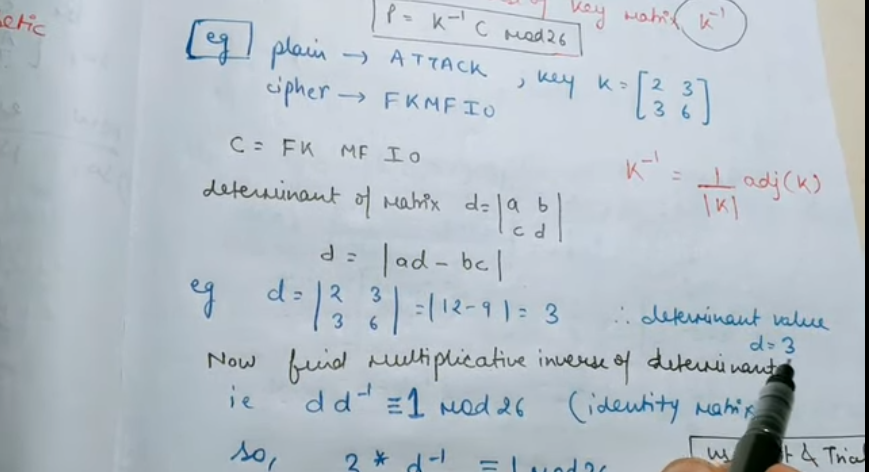 etic
of key matrix K⁻¹
P = K⁻¹ C mod 26
eg plain → ATTACK , key K = [2 3
3 6]
cipher → FKMFIO
C = FK MF IO
K⁻¹ = 1/|K| adj(K)
determinant of matrix d = |a b
c d|
d = |ad - bc|
eg d = |2 3
3 6| = |12-9| = 3 ∴ determinant value
d=3
Now find multiplicative inverse of determinant
ie d d⁻¹ ≡ 1 mod 26 (identity matrix
so, 3 * d⁻¹ = 1 mod 26
& Trial